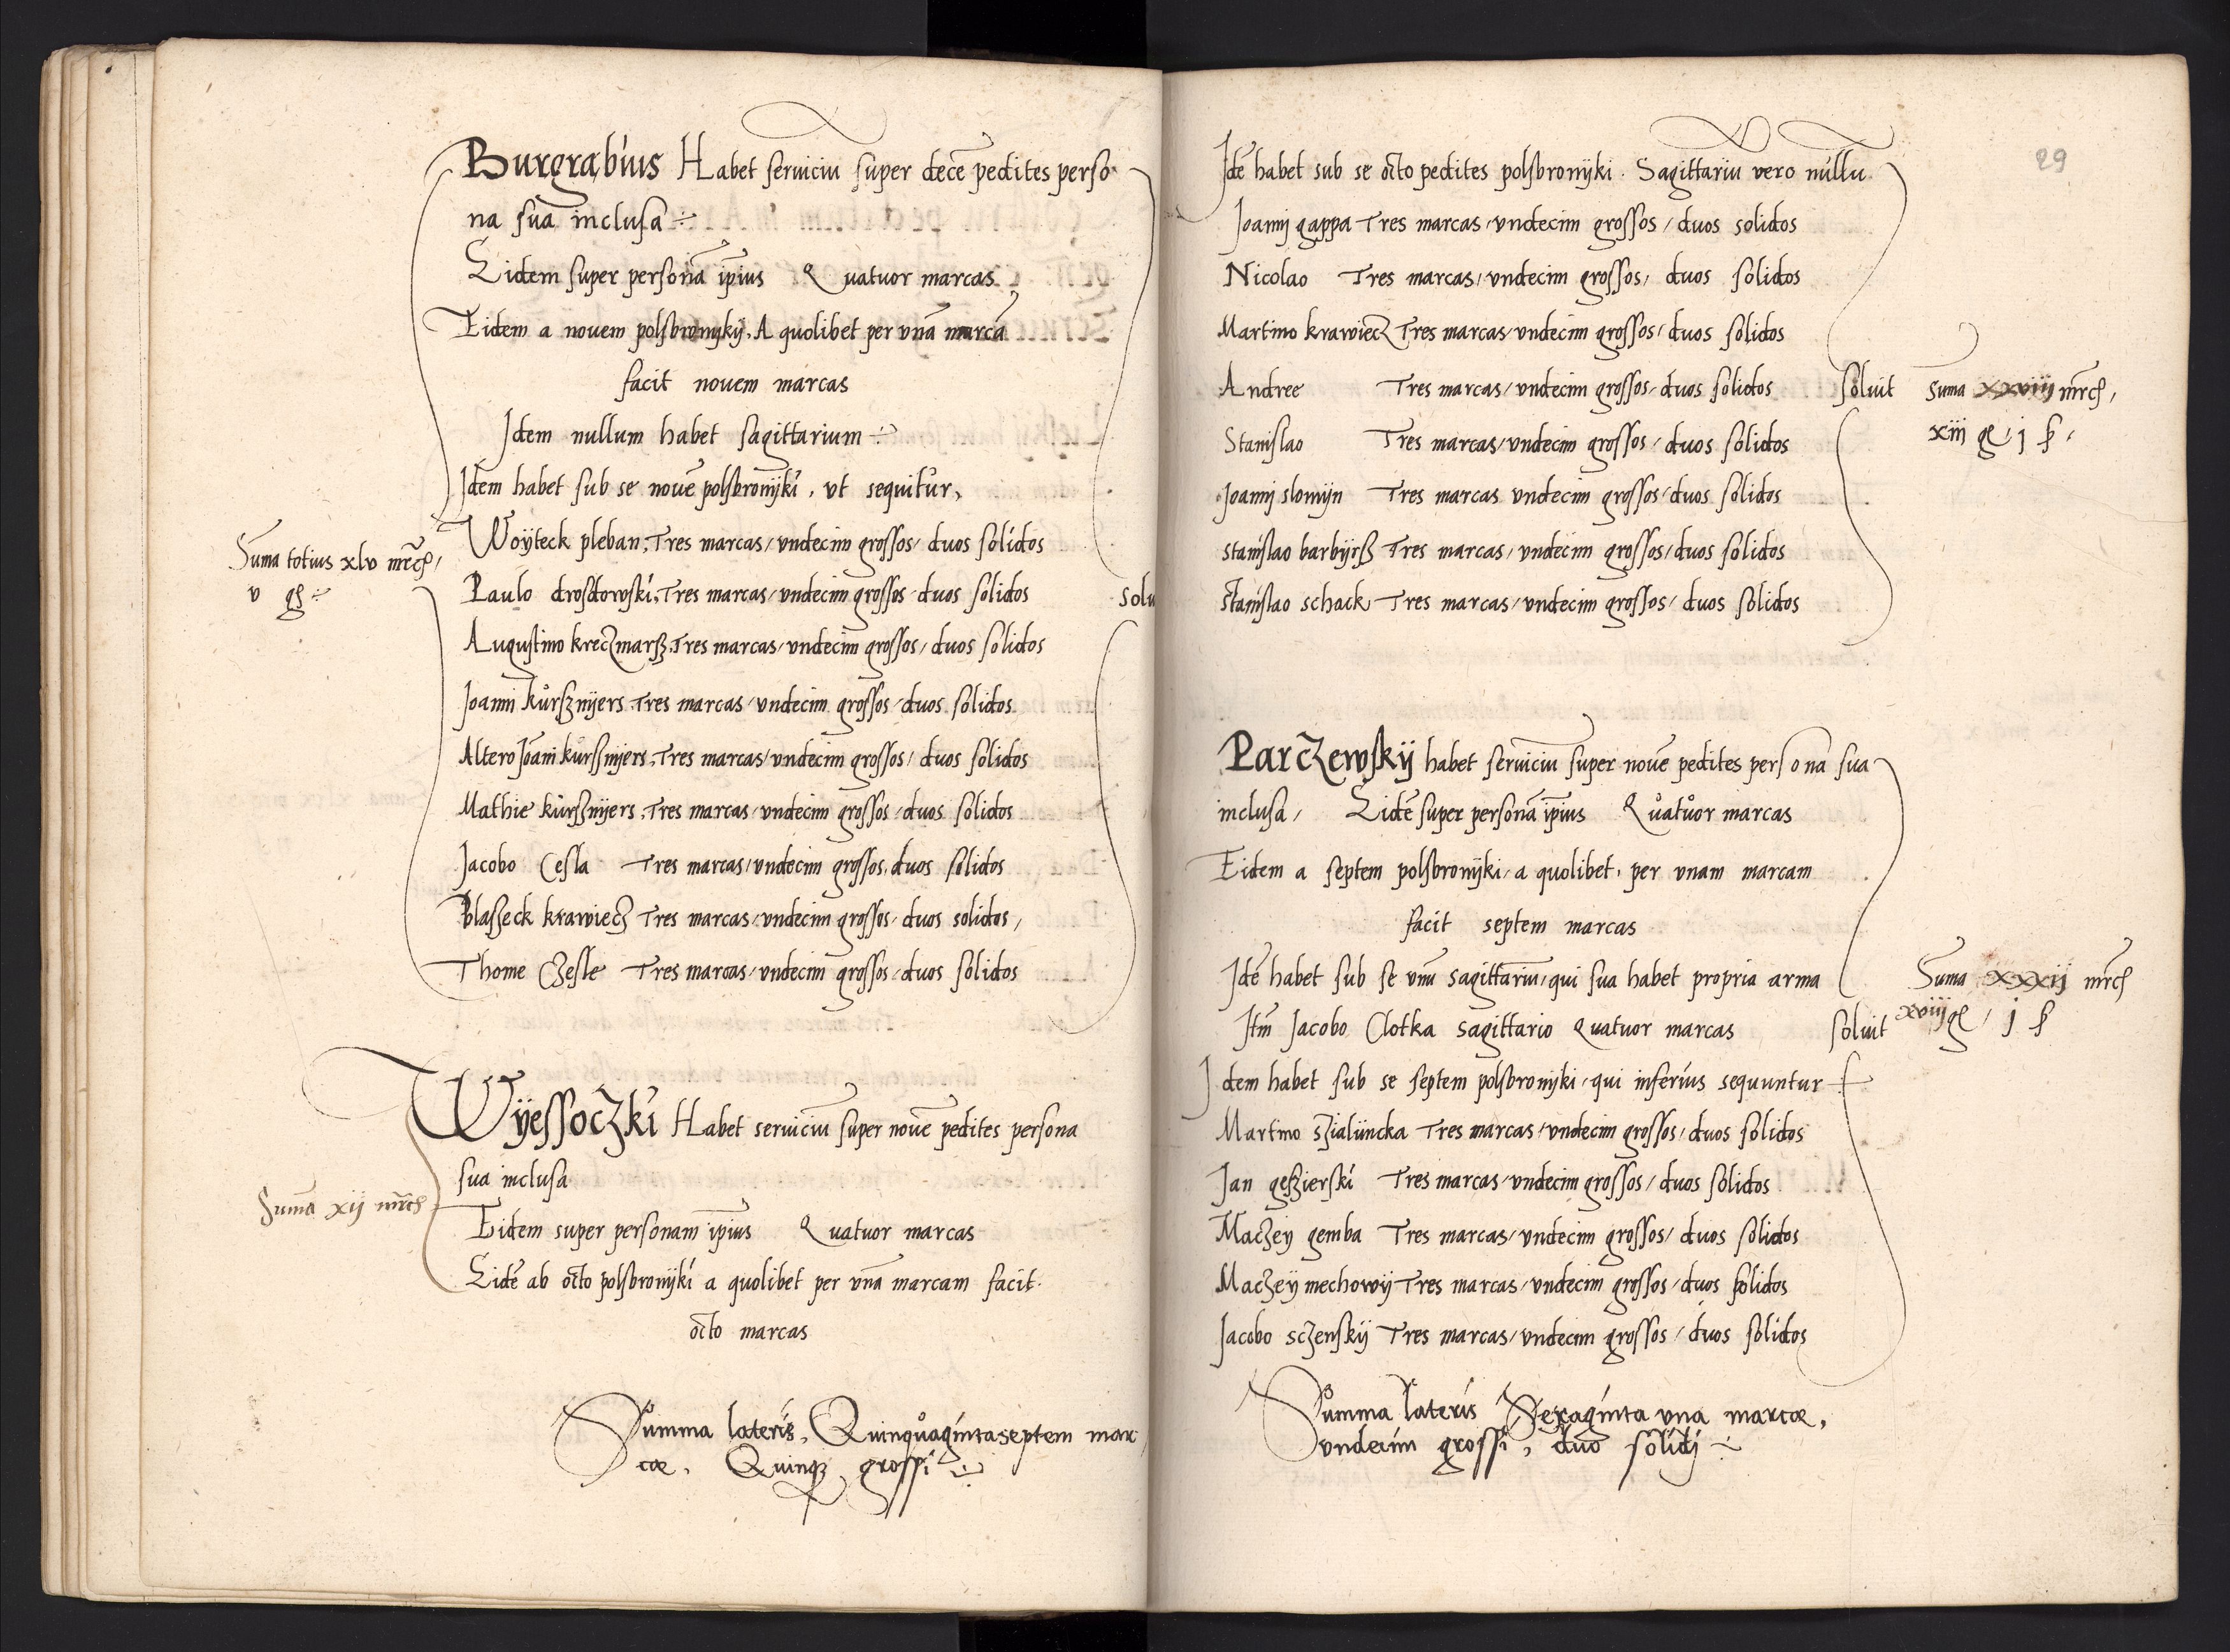 Burgrabius Habet seruiciu super dece pedites perso
na sua inclusa ÷
Eidem super persona ipius Quatuor marcas
Eidem a nouem polsbronyky, A quolibet per vnā marcā
facit nouem marcas
Idem nullum habet sagittarium ÷
Idem habet sub se nouē polsbronÿki, vt sequitur,
Suma totius xlv mrch,
v gl ÷
Woÿteck pleban, Tres marcas, vndecim grossos, duos solidos
Paulo drosdowski, Tres marcas, vndecim grossos, duos solidos
solu
Augustino kreczmarsz, Tres marcas, vndecim grossos, duos solidos
Joanni kůrsznÿers, Tres marcas, vndecim grossos, duos solidos
Altero Joāni kurssnÿers, Tres marcas, vndecim grossos, duos solidos
Mathie kurssnÿers, Tres marcas, vndecim grossos, duos solidos
Jacobo Cesla Tres marcas, vndecim grossos, duos solidos
Blaszeck krawiecz Tres marcas, vndecim grossos, duos solidos,
Thome Czesle Tres marcas, vndecim grossos, duos solidos
Wÿessoczki Habet seruiciū super nouē pedites persona
sua inclusa
Sumā xij mrch
Eidem super personam ipius Quatuor marcas
Eidē ab octo polsbronÿki a quolibet per vnā marcam facit
octo marcas
Summa lateris, Quinquagintaseptem mar
cæ, Quinqz grossi ÷
29
Idē habet sub se octo pedites polsbronÿki. Sagittariu vero nullu
Joanni gappa Tres marcas, vndecim grossos, duos solidos
Nicolao Tres marcas, vndecim grossos, duos solidos
Martino krawiecz Tres marcas, vndecim grossos, duos solidos
Andree Tres marcas, vndecim grossos, duos solidos
soluit Suma xxviij mrch,
xiij gl, j ß,
Stanislao Tres marcas, vndecim grossos, duos solidos
Joanni slomÿn Tres marcas vndecim grossos, duos solidos
stanislao barbÿrß Tres marcas, vndecim grossos, duos solidos
stanislao schack Tres marcas, vndecim grossos, duos solidos
Parczewskÿ habet seruiciu super nouē pedites persona sua
inclusa, Eidē super personā ipius Quatuor marcas
Eidem a septem polsbronÿki, a quolibet, per vnam marcam
facit septem marcas
Idē habet sub se vnu sagittariu, qui sua habet propria arma
Suma xxxij mrch
xviij gl, j ß
Itm Jacobo Clotka sagittario Quatuor marcas
soluit
Idem habet sub se septem polsbronÿki, qui inferius sequuntur
Martino szialuncka Tres marcas, vndecim grossos, duos solidos
Jan geszierski Tres marcas, vndecim grossos, duos solidos
Maczeÿ gemba Tres marcas, vndecim grossos, duos solidos
Maczeÿ mechowÿ Tres marcas, vndecim grossos, duos solidos
Jacobo sczenskÿ Tres marcas, vndecim grossos, duos solidos
Summa lateris Sexaginta vna marcæ,
vndecim grossi, duo solidj ÷